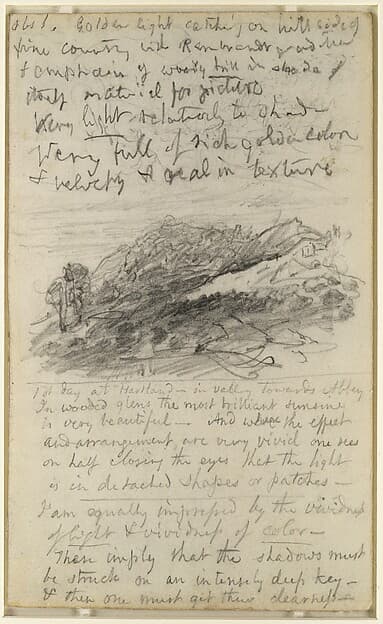 Golden light catching on hill side of
fine country with Rembrandt
& emphasis of woody hill in shade
itself material for picture
Very light relatively to shade
Very full of rich golden color
& velvety & real in texture
1st day at Hartland — in valley towards Abbey
In wooded glens the most brilliant sunshine
is very beautiful — And where the effect
and arrangement are very vivid one sees
on half closing the eyes that the light
is in detached shapes or patches —
I am equally impressed by the vividness
of light & vividness of color —
These imply that the shadows must
be struck on an intensely deep key —
& then one must get their clearness —